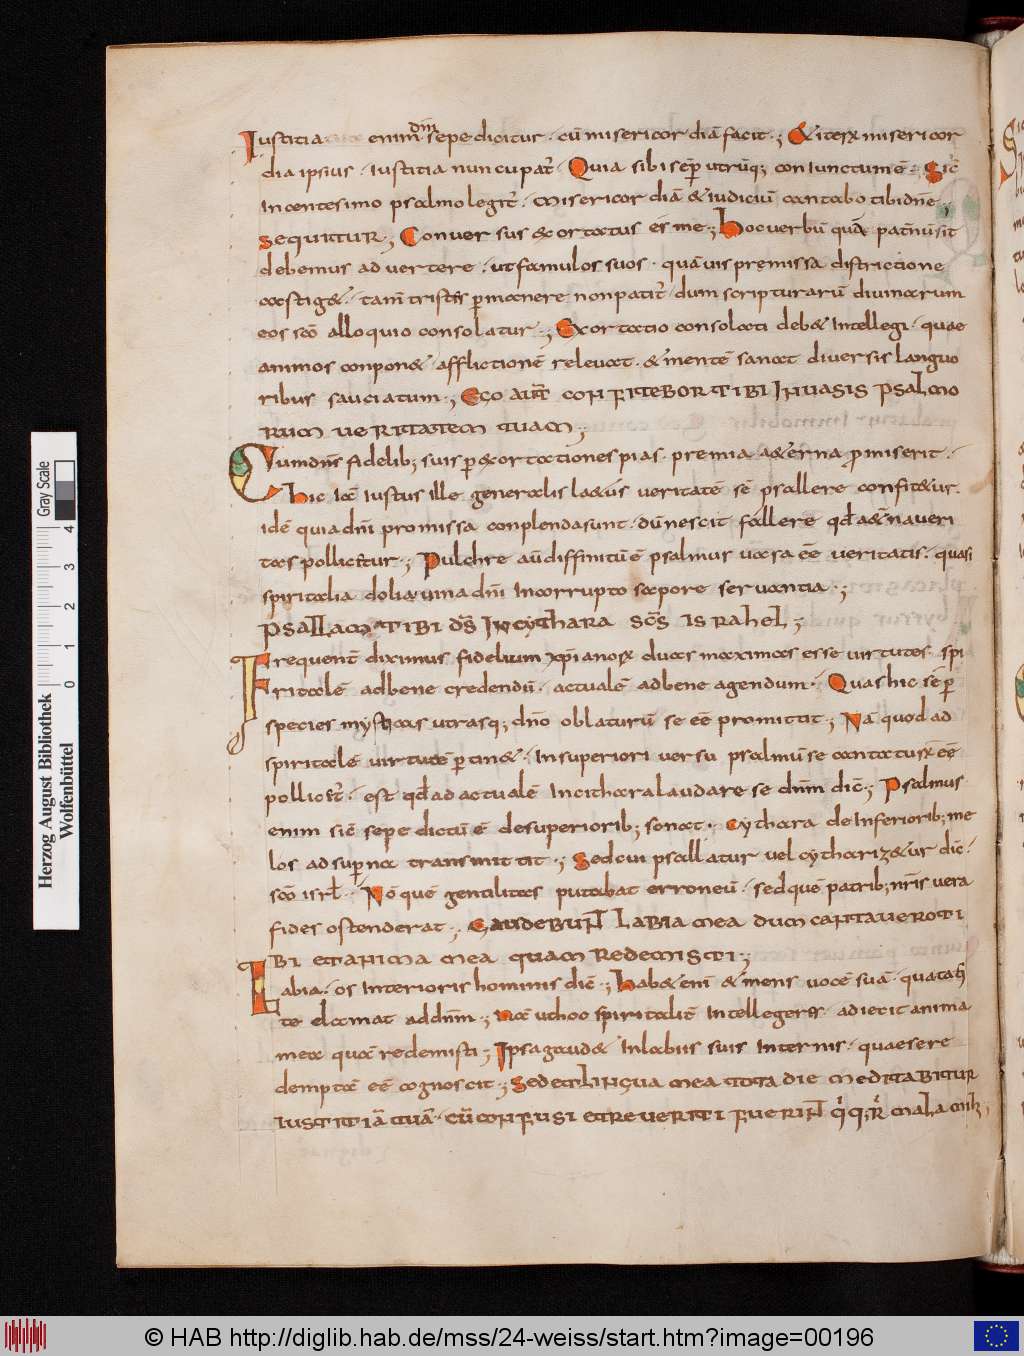 Iustitia enim dñi sepe dicitur · cū misericordiā facit ·; & iterꝝ misericor
dia ipsius · iustitia nuncupatʳ · Quia sibi sēp utrūq; coniunctum ē · Sic̄
in centesimo psalmo legitʳ · misericordiā & iudiciū cantabo tibi dn̄e ·;
sequitur ·; Conuersus exortatus es me ·; hoc uerbū quā patn̄ū sit
debemus aduertere · ut famulos suos · quāuis premissa districtione
castig& · tam̄ tristes pmanere non patitʳ · dum scripturarū diuinarum
eos sc̄o alloquio consolatur ·; Exortatio consolati deb& intellegi · quae
animos conpon& · afflictionē releuat · & mentē sanat diuersis languo
ribus sauciatum ·; Ego aut̄ confitebor tibi in uasis psalmo
rum ueritatem tuam ;
Cum dn̄s fidelib; suis p exortationes pias · premia aeterna pmiserit ·
hic iā iustus ille generalis laetus ueritatē sē psallere confitetur ·
idē quia dn̄i promissa conplenda sunt · dū nescit fallere qđ aeterna ueri
tas pollicetur ·; Pulchre aū diffinitū ē psalmus uasa eē ueritatis · quasi
spiritalia dolia uina dn̄i incorrupto sapore seruantia ·;
psallam tibi ds̄ in cythara sc̄s israhel ;
Frequent̄ diximus fidelium xp̄ianorꝝ duas maximas esse uirtutes · spi
ritalē ad bene credendū · actualē ad bene agendum · Quas hic sēp
species mysticas utrasq; dn̄o oblaturū se eē promittit ·; Nā quod ad
spiritalē uirtutē ptin& · in superiori uersu psalmū se cantaturꝝ eē
pollicetʳ · est qđ ad actualē in cithara laudare se dn̄m dic̄ ·; Psalmus
enim sic̄ sepe dictū ē de superiorib; sonat · cythara de inferiorib; me
los ad supna transmittit ·; Sed cui psallatur uel cytharizetur dic̄ ·
sc̄o isrl̄ · Nō quē gentilitas putabat erroneū · sed quē patrib; nr̄is uera
fides ostenderat ·; Gaudebunt labia mea dum cantauero ti
bi et anima mea quam redemisti ;
Labia · os interioris hominis dic̄ ·; hab& eni & mens uocē suā · qua tacen
te clamat ad dn̄m ·; Nāc ut hoc spiritalit̄ intellegeres · adiecit anima
mea quā redemisti ; Ipsa gaud& in labiis suis internis · quae se re
demptā eē cognoscit ·; Sed et lingua mea tota die meditabitur
iustitiā tuā · cū confusi et reueriti fuerint qui querūt mala mihi ;
Herzog August Bibliothek
Wolfenbüttel
Gray Scale
0 1 2 3 4
© HAB http://diglib.hab.de/mss/24-weiss/start.htm?image=00196